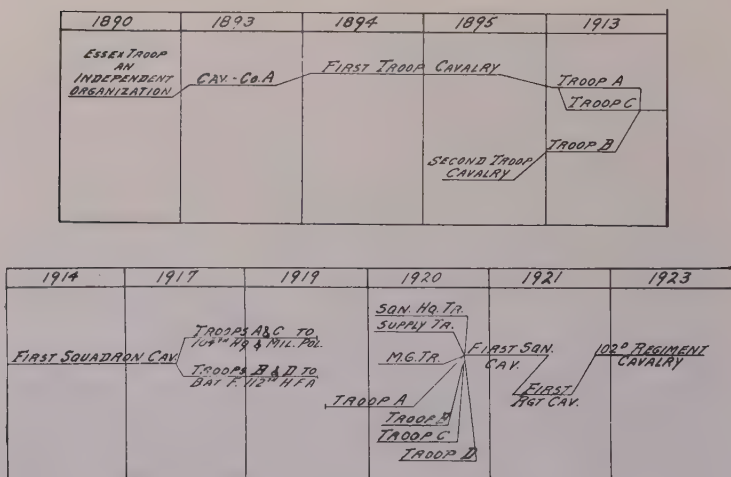 1890 1893 1894 1895 1913
ESSEX TROOP
AN
INDEPENDENT
ORGANIZATION
CAV.-CO.A
FIRST TROOP CAVALRY
TROOP A
TROOP C
TROOP B
SECOND TROOP
CAVALRY
1914 1917 1919 1920 1921 1923
FIRST SQUADRON CAV.
TROOPS A&C TO
104TH HQ & MIL. POL.
TROOPS B & D TO
BAT F. 112TH H F A
SQN. HQ. TR.
SUPPLY TR.
M.G. TR.
TROOP A
TROOP B
TROOP C
TROOP D
FIRST SQN.
CAV.
FIRST
RGT CAV.
102D REGIMENT
CAVALRY